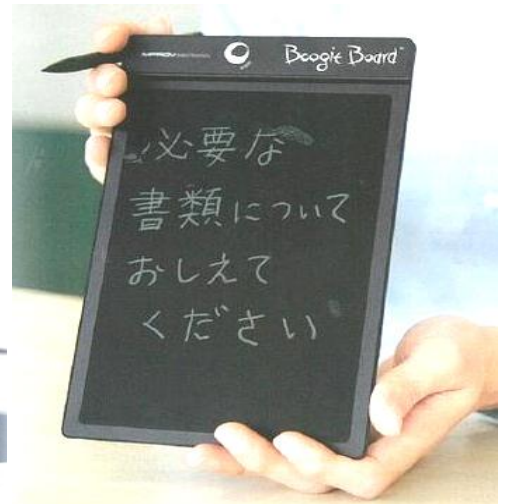 IMPROV ELECTRONICS Boogie Board™
必要な
書類について
おしえて
ください